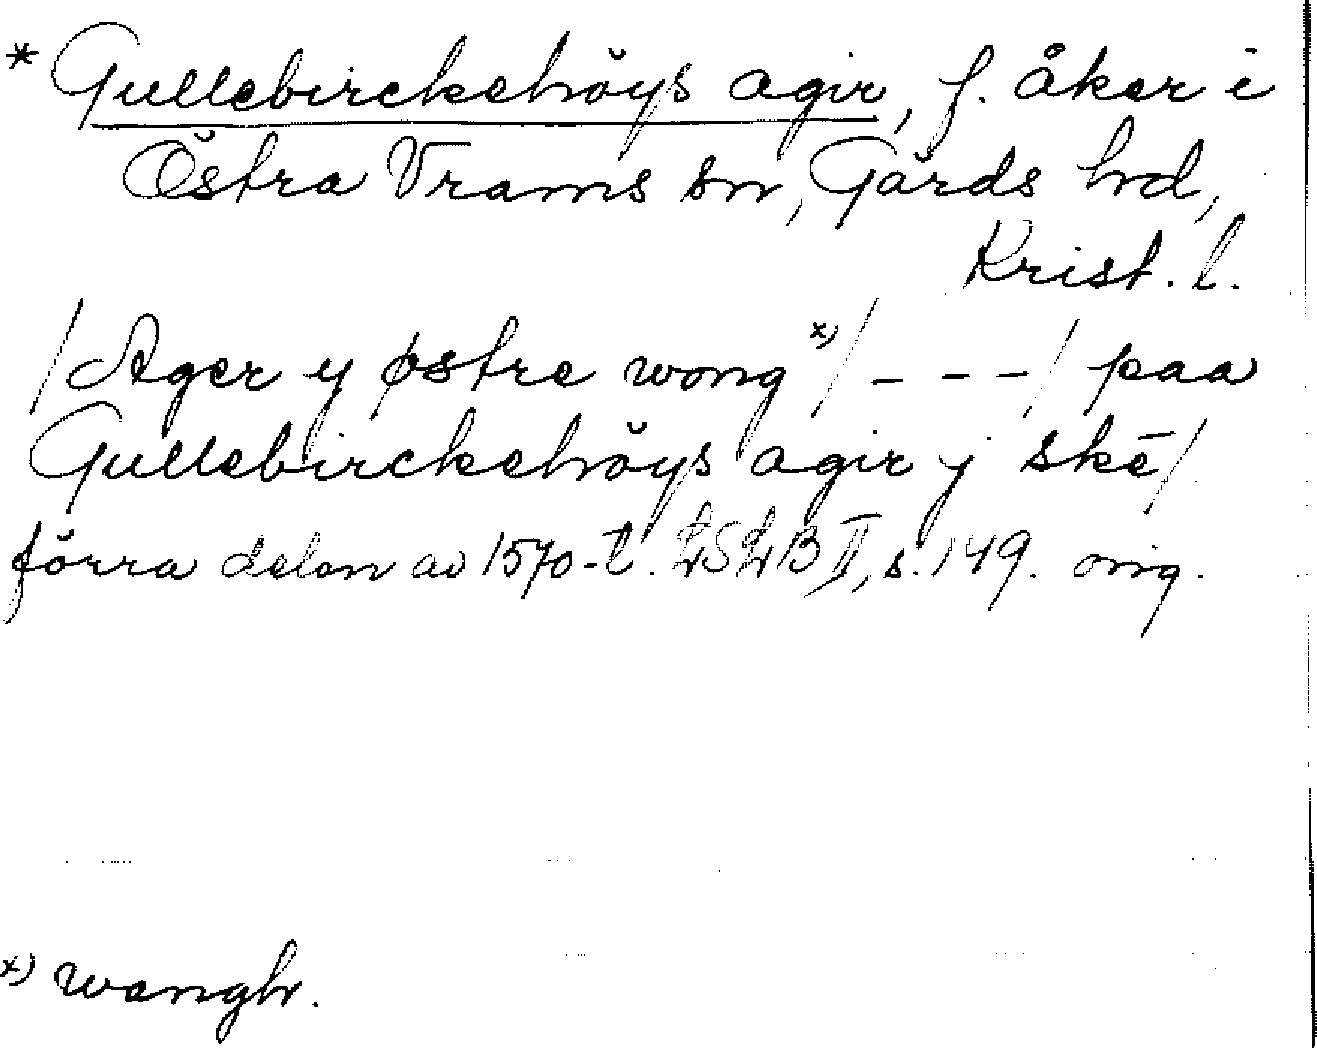 * Gullebirckehöys agir, f. åker i
Östra Vrams sn, Gärds hd,
Krist. l.
/Ager y østre wong x)/ - - - / paa
Gullebirckehöys agir y skē/
förra delen av 1570-t. LSLB II, s. 149. orig.
x) wangh.